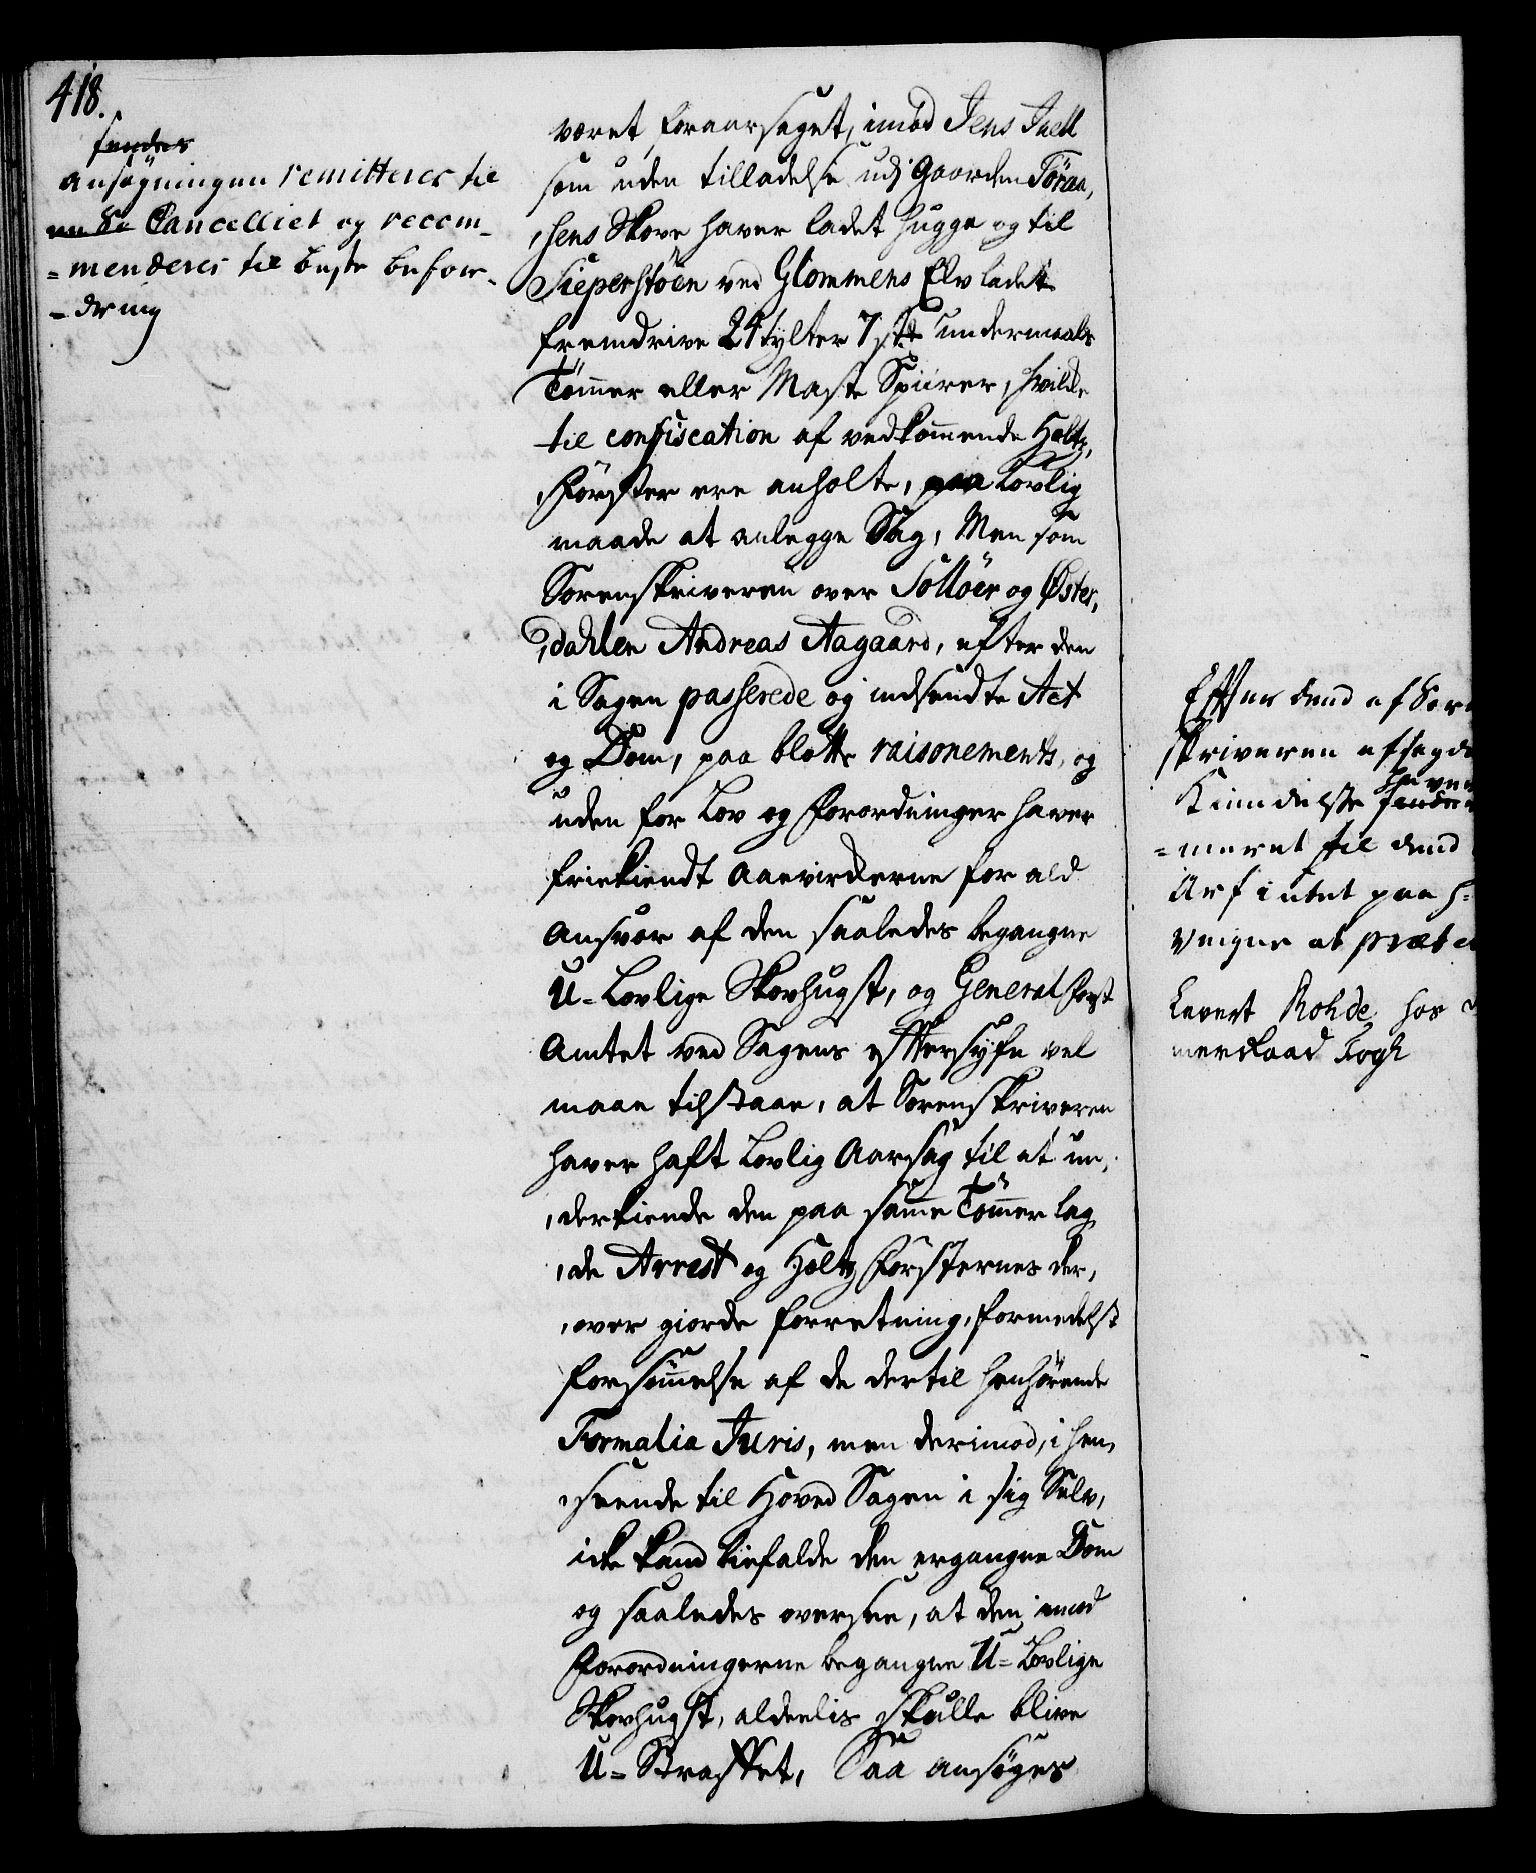 418.
sendes
ansøgningen remitteres til
Cancelliet og recom-
=menderes til beste befor-
-dring
været foraarsaget, imod Jens Juell
som uden tilladelse udj Gaarden Töraa,
,sens Skove haver ladet hugge og til
Sieperstöen ved Glommens Elv ladet
fremdrive 24 tylter 7 st. undermaals
Tömer eller Maste Spiirer, hvilke
til confiscation af vedkommende Holtz,
,Förster ere anholte, paa Lovlig
maade at anlegge Sag, Men som
Sorenskriveren over Solöer og Öster,
,dahlen Andreas Aagaard, efter den
i Sagen passerede og indsendte Act
og Dom, paa blotte raisonements, og
uden for Lov og Forordninger haver
friekiendt Aavirkerne for ald
Ansvar af den saaledes begangne
U-Lovlige Skovhugst, og General Forst
Amtet ved Sagens Eftersyfn vel
maae tilstaae, at Sorenskriveren
haver haft Lovlig Aarsag til at un,
,derkiende den paa samme Tömer lag,
,de Arrest og Holtz Försternes der,
,over giorde forretning, formedelst
forsömmelse af de dertil henhörende
Formalia Juris, men derimod, i hen,
,seende til Hoved Sagen i sig Selv,
icke kand biefalde den ergangne Dom
og saaledes oversee, at den imod
Forordningerne begangne U-Lovlige
Skovhugst, aldeelis skulle blive
U-Straffet, Saa ansøges
Efter dend af Sor
skriveren afsagde
Kiendelse
=meret til dend
Arf intet paa h
Veigne at præt
Levert Rohde hos
merraad Kogh